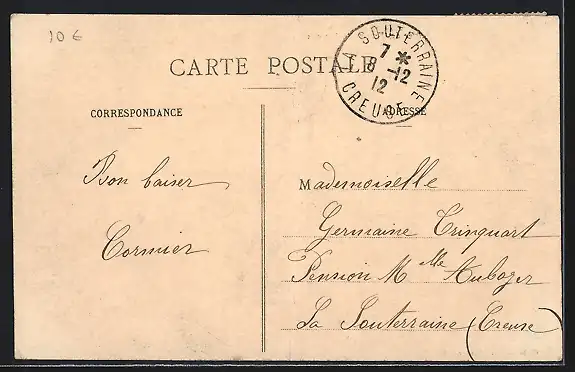 10 €
CARTE POSTALE
LA SOUTERRAINE
7 *
8 -12
12
CREUSE
CORRESPONDANCE
ADRESSE
Bon baiser
Cormier
Mademoiselle
Germaine Trinquart
Pension Mlle Auboyer
La Souterraine (Creuse)